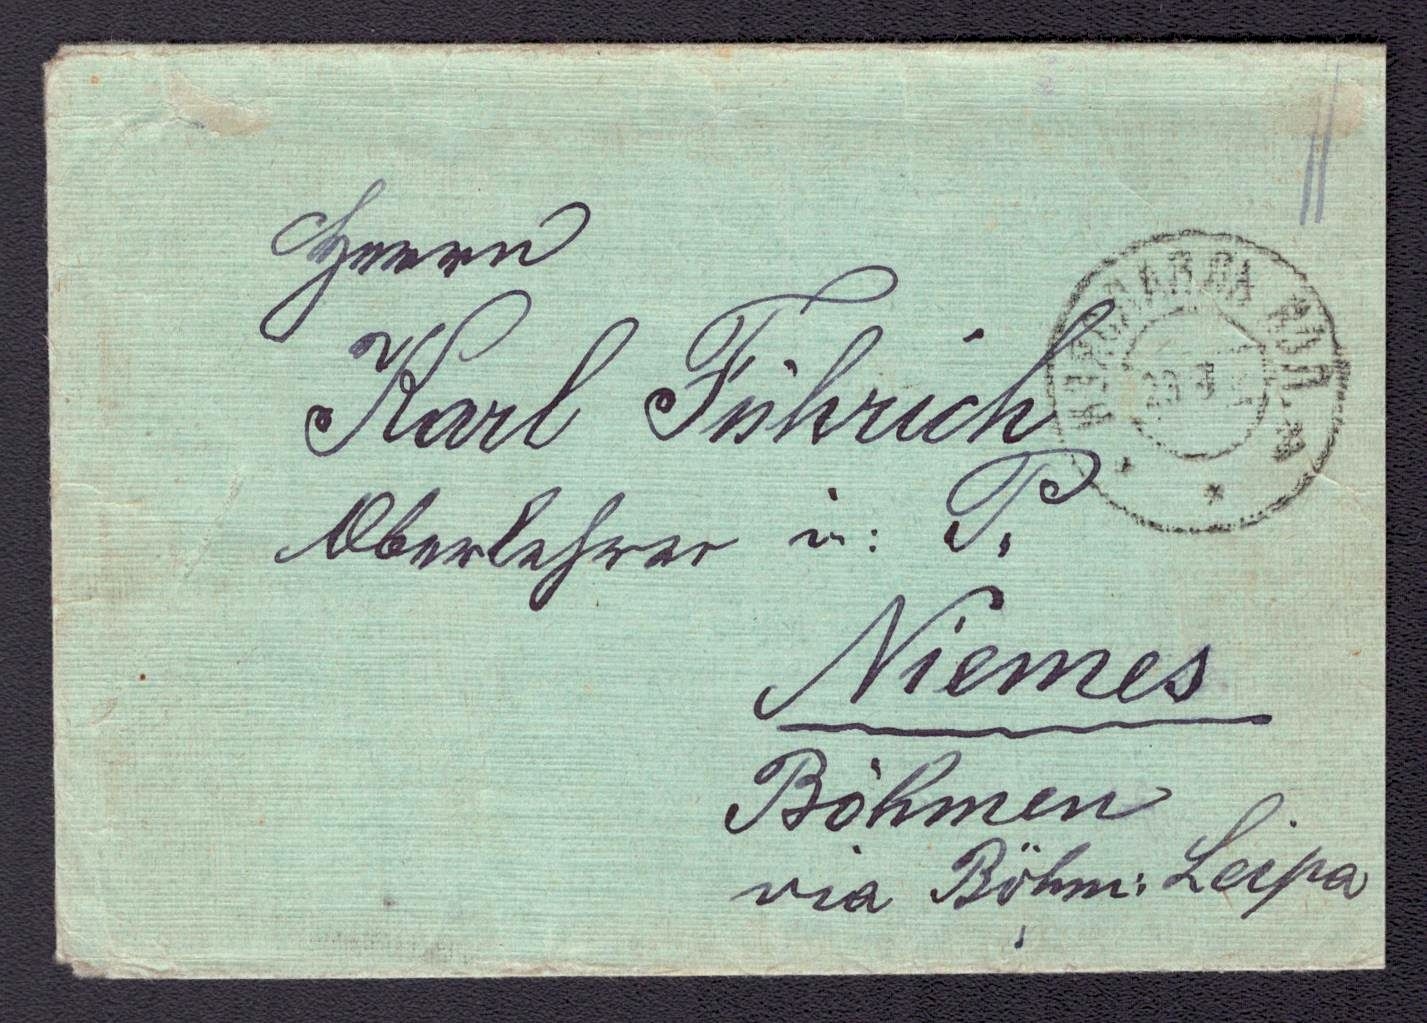 Herrn
Karl Führich
Oberlehrer in: P.
Niemes
Böhmen
via Böhm: Leipa